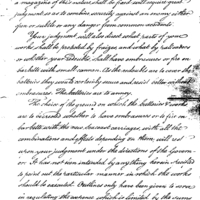 a magazine of this nature shall be fixed will require great
judgment so as to combine security against an enemy either
fire or subtle or any danger from common accident.
Your judgment will also direct what parts of your
works shall be protected by fraizes and what by
or whether your Batteries shall have embrasures or fire en
barbette with small
they will certainly annoy and assist
embrasures. The batteries are to annoy.
The choice of the ground on which the batteries &
are to be erected whether to have embrasures or to fire en
barbette with the new sea coast carriages, with all the
combinations and effects depending on them, will rest
upon your judgement under the directions of the Gover-
nor. It has not been intended by anything herein recited
to point out the particular manner in which the works
should be executed. Outlines only have been given to serve
in regulating the expence which is limited by the sums